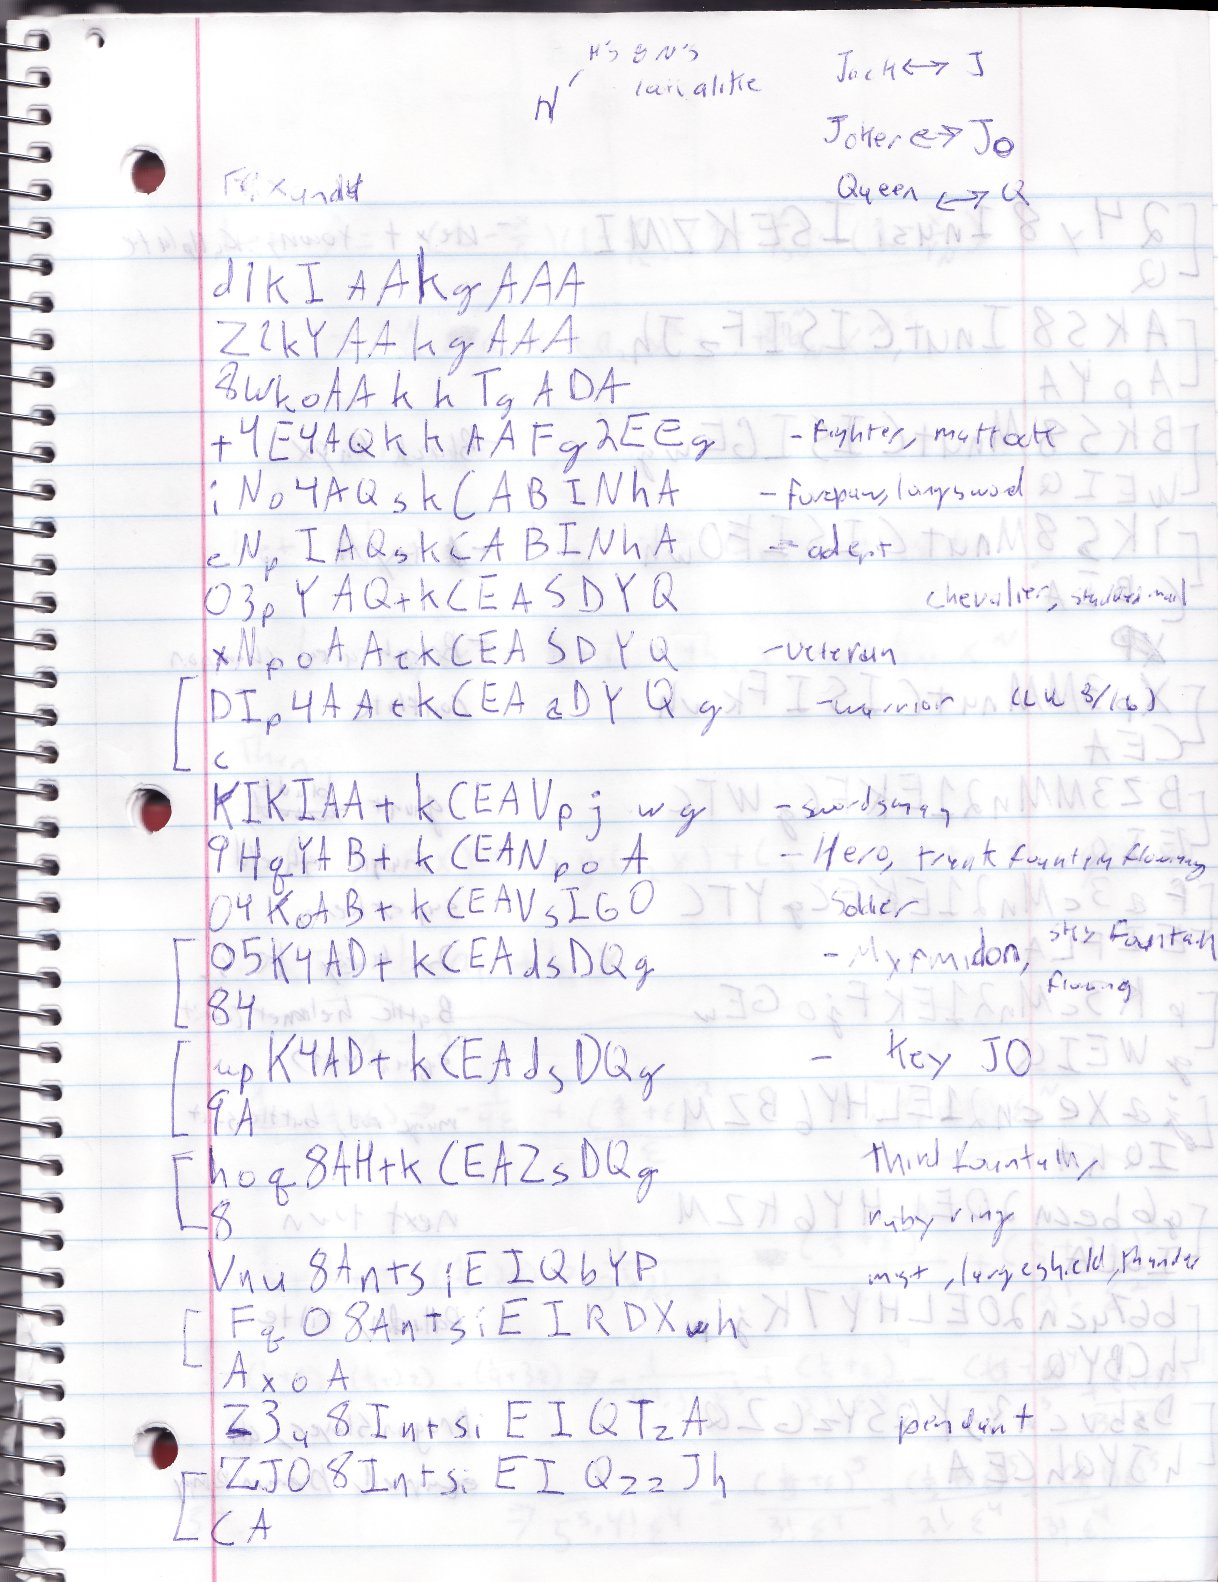 H's & N's
look alike
N
Jack ↔ J
Joker ↔ JO
Queen ↔ Q
d1kIAAkgAAA
Z2kYAAhgAAA
8WkoAAkhTgADA
+4E4AQkhAAFg2EEg - fighter, mattock
iNo4AQskCABINhA - forepaw, longsword
eNpIAQskCABINhA - adept
03pYAQ+kCEASDYQ chevalier, studded mail
xNpoAA+kCEASDYQ - veteran
DIp4AA+kCEAaDYQg - warrior
c
KIKIAA+kCEAVpjwg - swordsman
9HqYAB+kCEANpoA - Hero, trunk fountain flowing
04KoAB+kCEAVsIGO Soldier
05K4AD+kCEAdsDQg - Myrmidon, sky fountain
84 flowing
upK4AD+kCEAdsDQg - key JO
9A
hoq8AH+kCEAZsDQg third fountain,
8 ruby ring
Vnu8An+siEIQbYP mist, large shield, thunder
FqO8An+siEIRDXwh
AxoA
Z3u8In+siEIQTzA pendant
ZJO8In+siEIQzzJh
CA